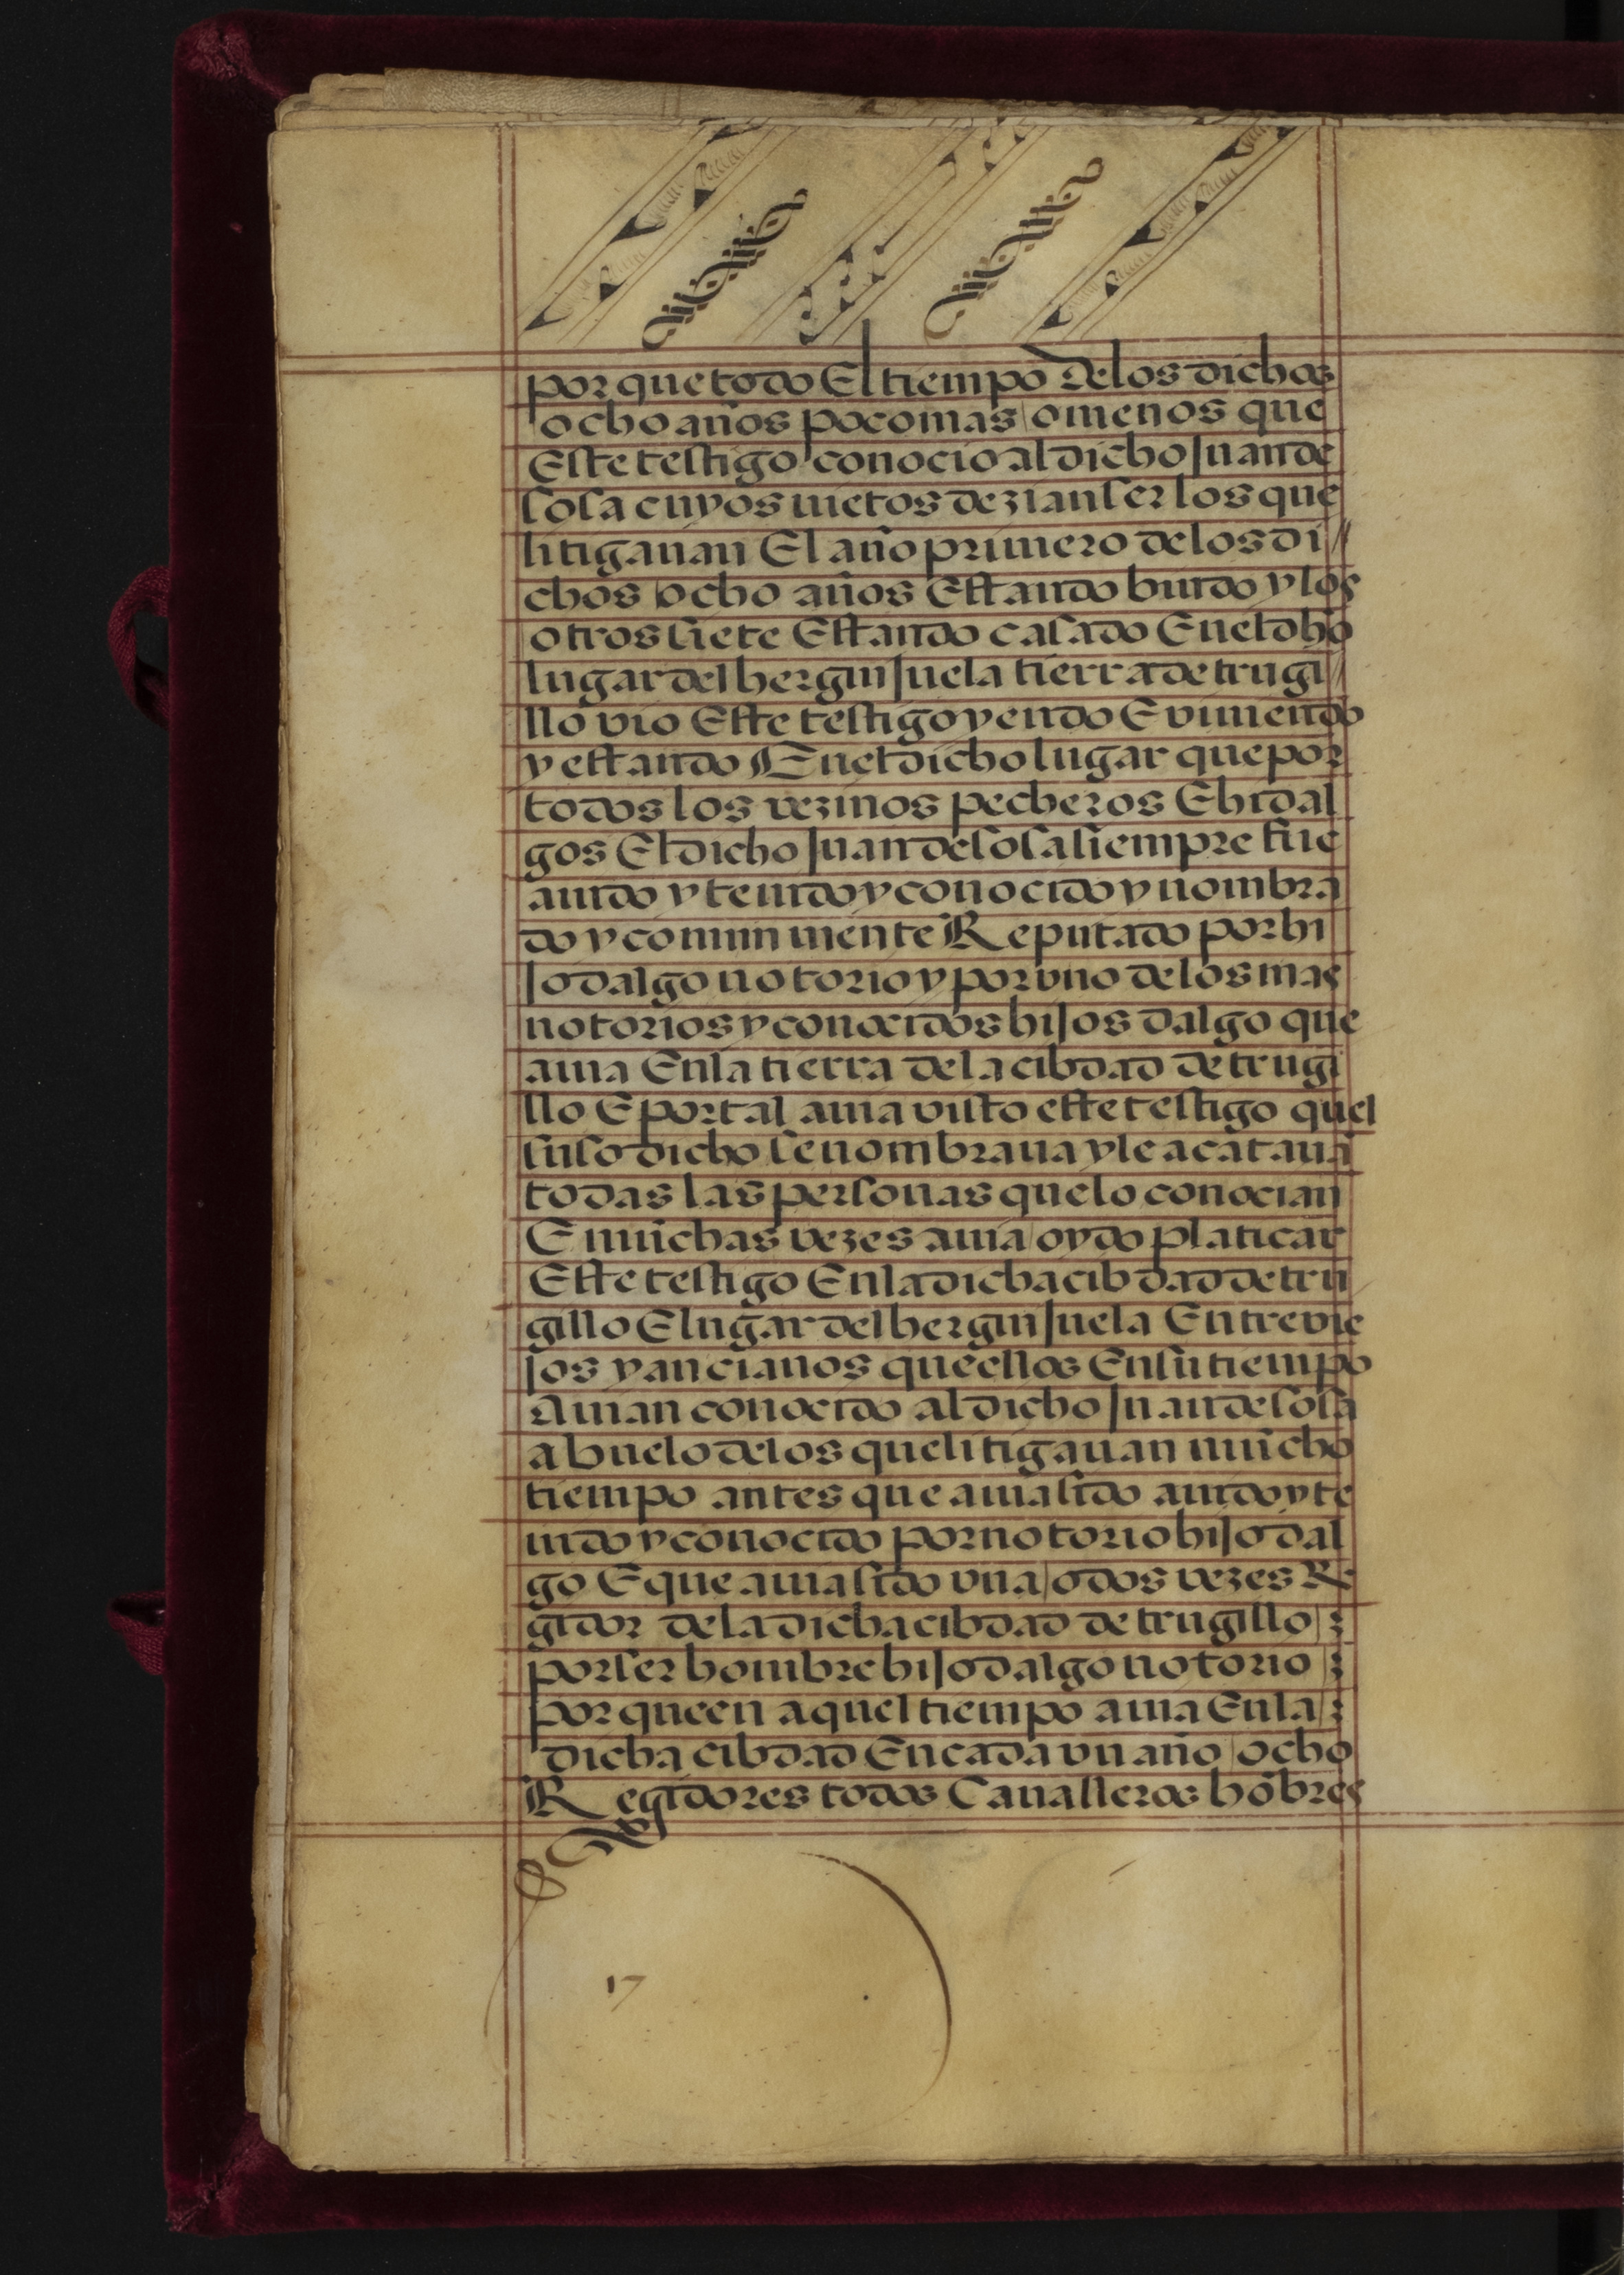 por que todo El tiempo delos dichos
ocho años poco mas o menos que
Este testigo conocio al dicho Juan de
sosa cuyos nietos dezian ser los que
litigauan El año primero delos di//
chos ocho años Estando biudo y los
otros siete Estando casado Enel dho
lugar del berginjuela tierra de trugi//
llo vio Este testigo yendo E viniendo
y estando Enel dicho lugar que por
todos los vezinos pecheros E hidal
gos El dicho Juan de sosa siempre fue
auido y tenido y conocido y nombra
do y comun mente Reputado por hi
jodalgo notorio y por vno delos mas
notorios y conocidos hijos dalgo que
auia Enla tierra dela cibdad de trugi
llo E por tal auia visto este testigo quel
suso dicho se nombraua y le acataua
todas las personas que lo conocian
E muchas vezes auia oydo platicar
Este testigo Enla dicha cibdad de tru
gillo E lugar del berginjuela Entre vie
jos y ancianos que ellos En su tiempo
Auian conocido al dicho Juan de sosa
abuelo delos que litigauan mucho
tiempo antes que auia sido auido y te
nido y conocido por notorio hijodal
go E que auia sido vna o dos vezes Re
gidor dela dicha cibdad de trugillo
por ser hombre hijodalgo notorio
por que en aquel tiempo auia Enla
dicha cibdad En cada vn año ocho
Regidores todos Caualleros hõbres
17